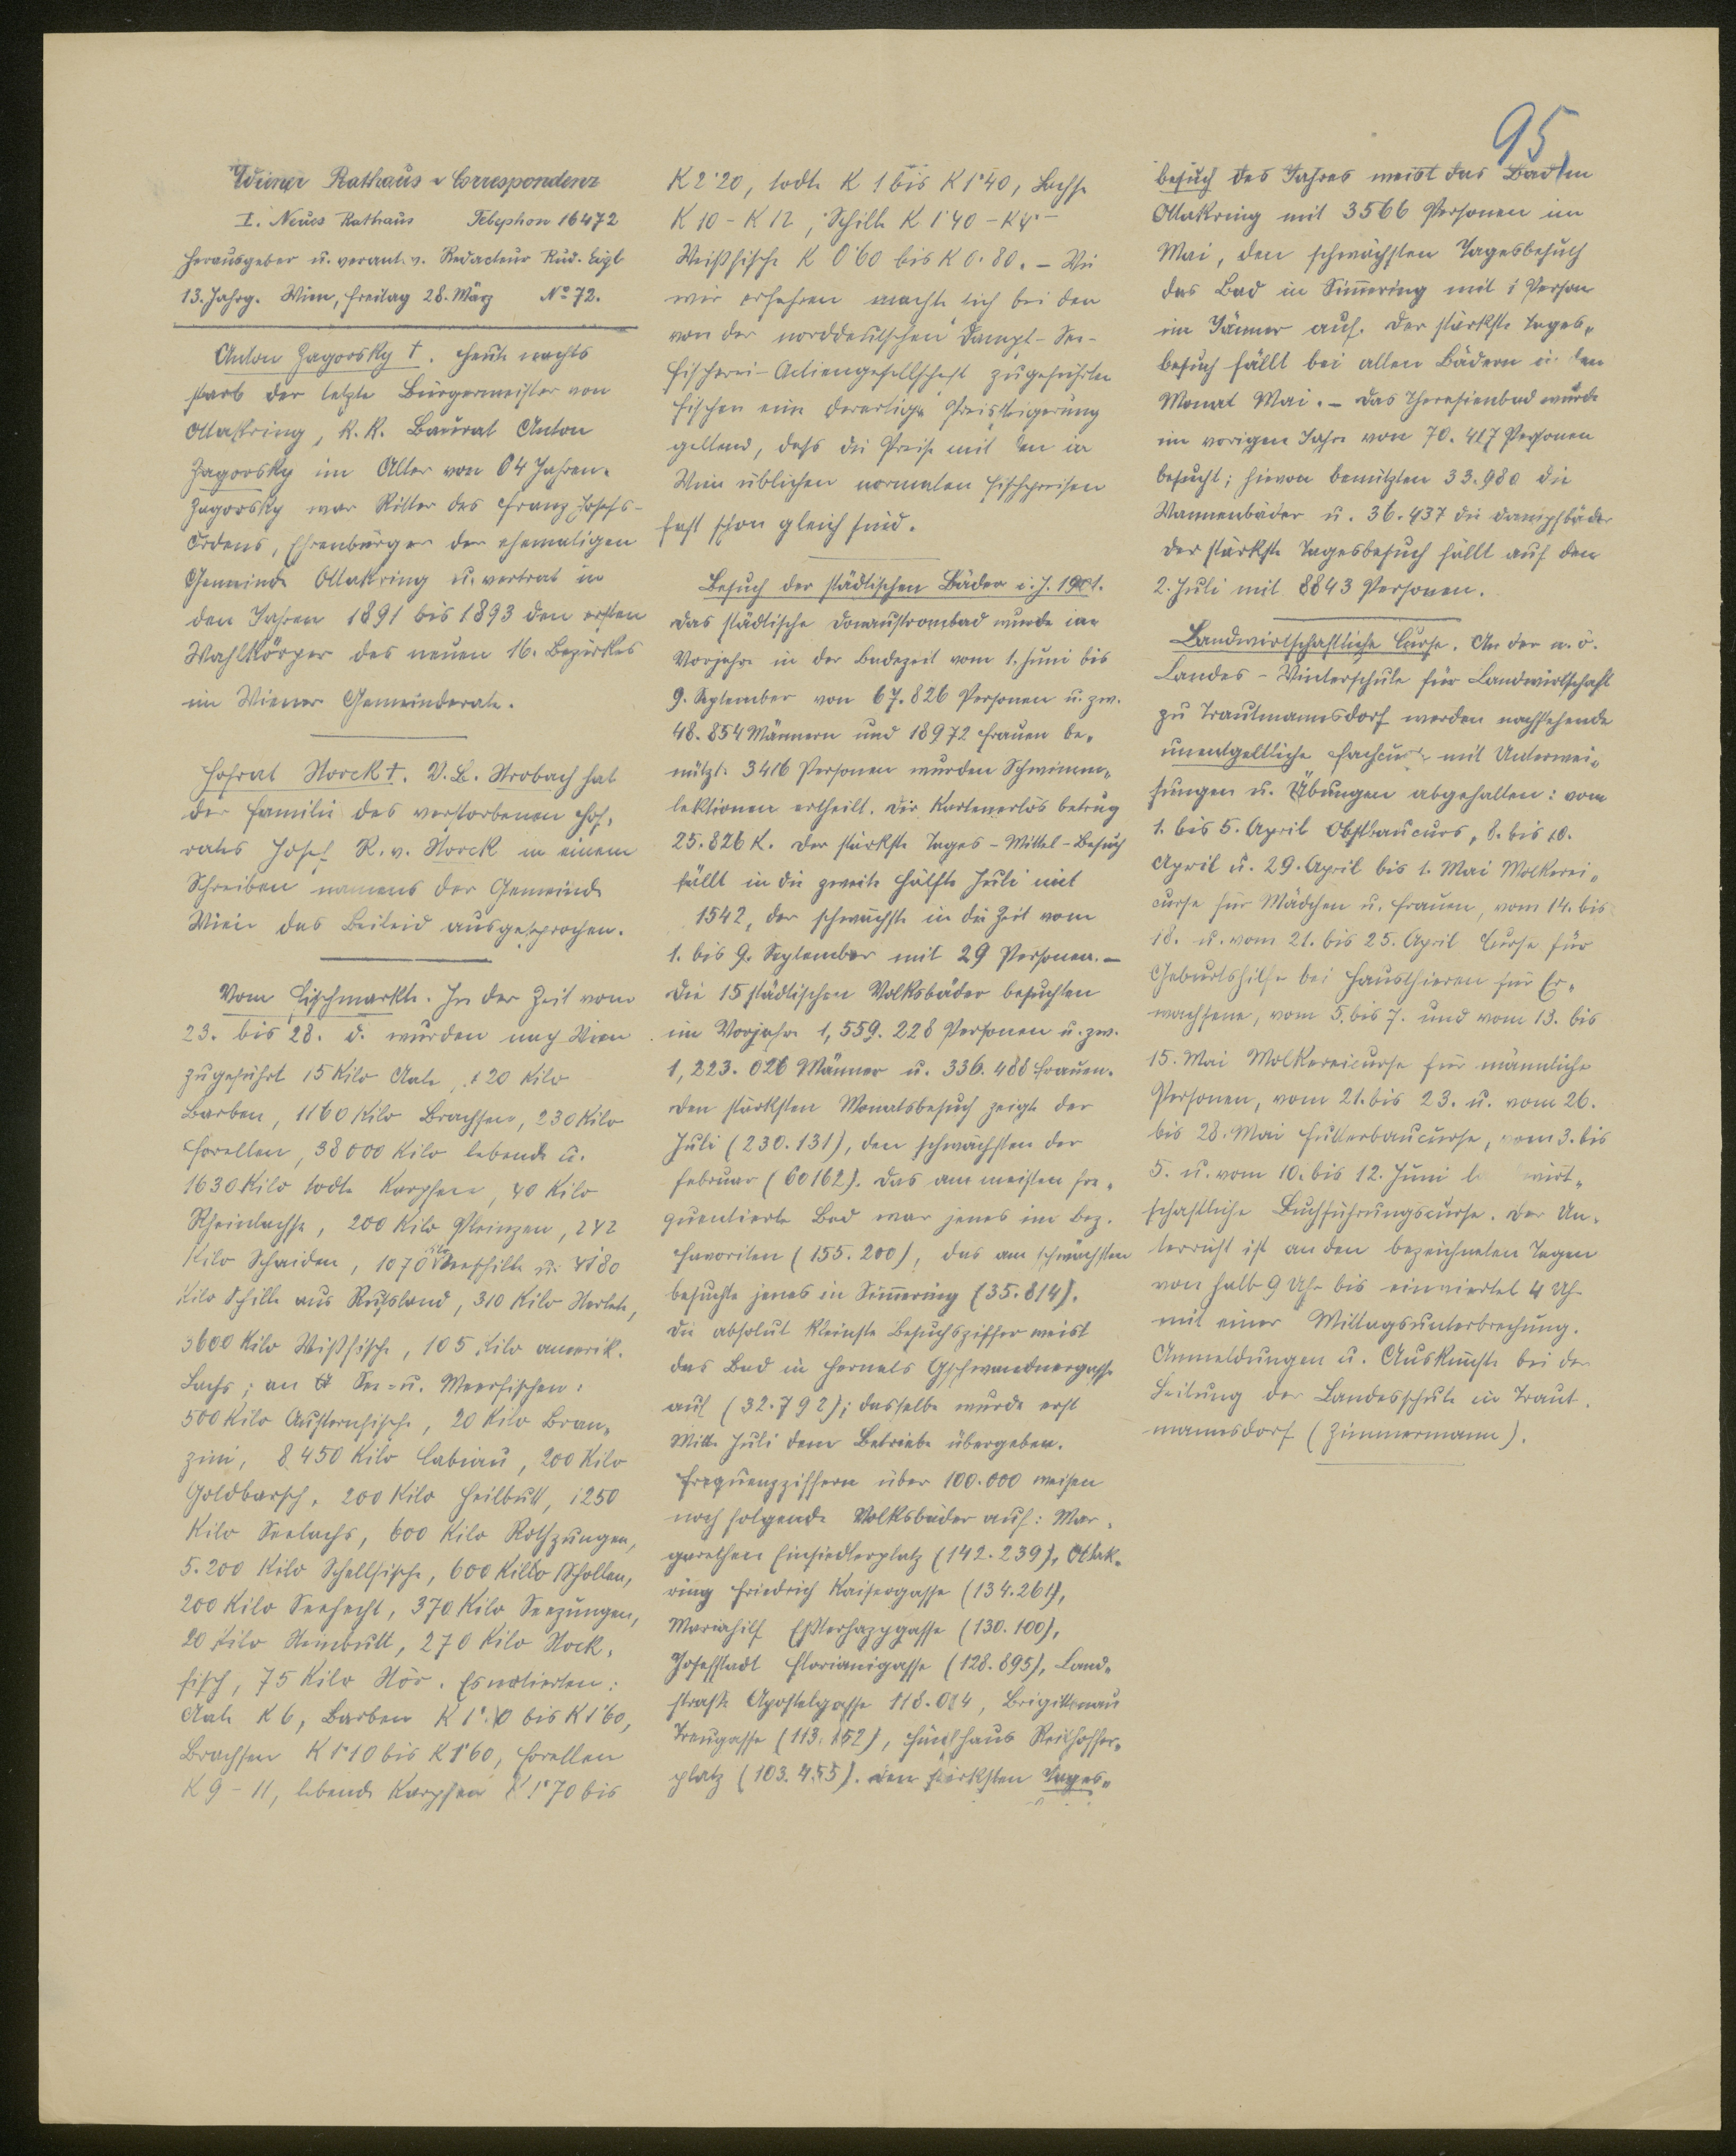 95
Wiener Rathaus-Correspondenz
I. Neues Rathaus Telephon 16472
Herausgeber u. verantw. Redacteur Rud. Eigl
13. Jahrg. Wien, Freitag 28. März No 72.
Anton Zagorsky †. Heute nachts
starb der letzte Bürgermeister von
Ottakring, k. k. Baurat Anton
Zagorsky im Alter von 64 Jahren.
Zagorsky war Ritter des Franz Josefs-
Ordens, Ehrenbürger der ehemaligen
Gemeinde Ottakring u. vertrat in
den Jahren 1891 bis 1893 den ersten
Wahlkörper des neuen 16. Bezirkes
im Wiener Gemeinderate.
Hofrat Storck †. V. B. Strobach hat
der Familie des verstorbenen Hof-
rates Josef R. v. Storck in einem
Schreiben namens der Gemeinde
Wien das Beileid ausgesprochen.
Vom Fischmarkte. In der Zeit vom
23. bis 28. d. wurden nach Wien
zugeführt 15 Kilo Aale, 120 Kilo
Barben, 1160 Kilo Brachsen, 230 Kilo
Forellen, 38000 Kilo lebende u.
1630 Kilo todte Karpfen, 40 Kilo
Rheinlachse, 200 Kilo Pleinzen, 242
Kilo Schaiden, 1070 Kilo Schille u. 4180
Kilo Schille aus Russland, 310 Kilo Sterlete,
3600 Kilo Weißfische, 105 Kilo amerik.
Lachs; an See- u. Meerfischen:
500 Kilo Austernfische, 20 Kilo Bran-
zini, 8450 Kilo Cabiau, 200 Kilo
Goldbarsch, 200 Kilo Heilbutt, 1250
Kilo Seelachs, 600 Kilo Rothzungen,
5.200 Kilo Schellfische, 600 Kilo Schollen,
200 Kilo Seehecht, 370 Kilo Seezungen,
20 Kilo Steinbutt, 270 Kilo Stock-
fisch, 75 Kilo Stör. Es notierten:
Aale K 6, Barben bis K 1'60,
Brachsen K 1'10 bis K 1'60, Forellen
K 9 - 11, lebende Karpfen K 1'70 bis
K 2'20, todte K 1 bis K 1'40, Lachse
K 10 - K 12, Schille K 1'40 - K 4'-
Weißfische K 0'60 bis K 0.80. - Wie
wir erfahren macht sich bei den
von der norddeutschen Dampf-See-
fischerei-Actiengesellschaft zugeführten
Fischen eine derartige Preissteigerung
geltend, dass die Preise mit den in
Wien üblichen normalen Fischpreisen
fast schon gleich sind.
Besuch der städtischen Bäder i. J. 1901.
Das städtische Donaustrombad wurde im
Vorjahre in der Badezeit vom 1. Juni bis
9. September von 67.826 Personen u. zw.
48.854 Männern und 18972 Frauen be-
nützt. 3416 Personen wurden Schwimm-
lektionen ertheilt. Der Kartenerlös betrug
25.826 K. Der stärkste Tages-Mittel-Besuch
fällt in die zweite Hälfte Juli mit
1542, der schwächste in die Zeit vom
1. bis 9. September mit 29 Personen. -
Die 15 städtischen Volksbäder besuchten
im Vorjahre 1,559.228 Personen u. zw.
1,223.026 Männer u. 336.488 Frauen.
Den stärksten Monatsbesuch zeigte der
Juli (230.131), den schwächsten der
Februar (60162). Das am meisten fre-
quentierte Bad war jenes im Bez.
Favoriten (155.200), das am schwächsten
besuchte jenes in Simmering (35.814).
Die absolut kleinste Besuchsziffer weist
das Bad in Hernals Gschwandnergasse
auf (32.792); dasselbe wurde erst
Mitte Juli dem Betriebe übergeben.
Frequenzziffern über 100.000 weisen
noch folgende Volksbäder auf: Mar-
garethen Einsiedlerplatz (142.239), Ottak-
ring Friedrich Kaisergasse (134.261),
Mariahilf Eßterhazygasse (130.100),
Josefstadt Florianigasse (128.895), Land-
straße Apostelgasse 118.084, Brigittenau
Treugasse (113.152), Fünfhaus Reithoffer-
platz (103.455). Den stärksten Tages-
besuch des Jahres weist das Bad in
Ottakring mit 3566 Personen im
Mai, den schwächsten Tagesbesuch
das Bad in Simmering mit 1 Person
im Jänner auf. Der stärkste Tages-
besuch fällt bei allen Bädern in den
Monat Mai. - Das Theresienbad wurde
im vorigen Jahre von 70.417 Personen
besucht; hievon benützten 33.980 die
Wannenbäder u. 36.437 die Dampfbäder
Der stärkste Tagesbesuch fällt auf den
2. Juli mit 8843 Personen.
Landwirtschaftliche Curse. An der n. ö.
Landes-Winterschule für Landwirtschaft
zu Trautmannsdorf werden nachstehende
unentgeltliche Fachcurse mit Unterwei-
sungen u. Übungen abgehalten: vom
1. bis 5. April Obstbaucurs, 8. bis 10.
April u. 29. April bis 1. Mai Molkerei-
curse für Mädchen u. Frauen, vom 14. bis
18. u. vom 21. bis 25. April Curse für
Geburtshilfe bei Hausthieren für Er-
wachsene, vom 5. bis 7. und vom 13. bis
15. Mai Molkereicurse für männliche
Personen, vom 21. bis 23. u. vom 26.
bis 28. Mai Futterbaucurse, vom 3. bis
5. u. vom 10. bis 12. Juni landwirt-
schaftliche Buchführungscurse. Der Un-
terricht ist an den bezeichneten Tagen
von halb 9 Uhr bis einviertel 4 Uhr
mit einer Mittagsunterbrechung.
Anmeldungen u. Auskünfte bei der
Leitung der Landesschule in Traut-
mannsdorf (Zimmermann).